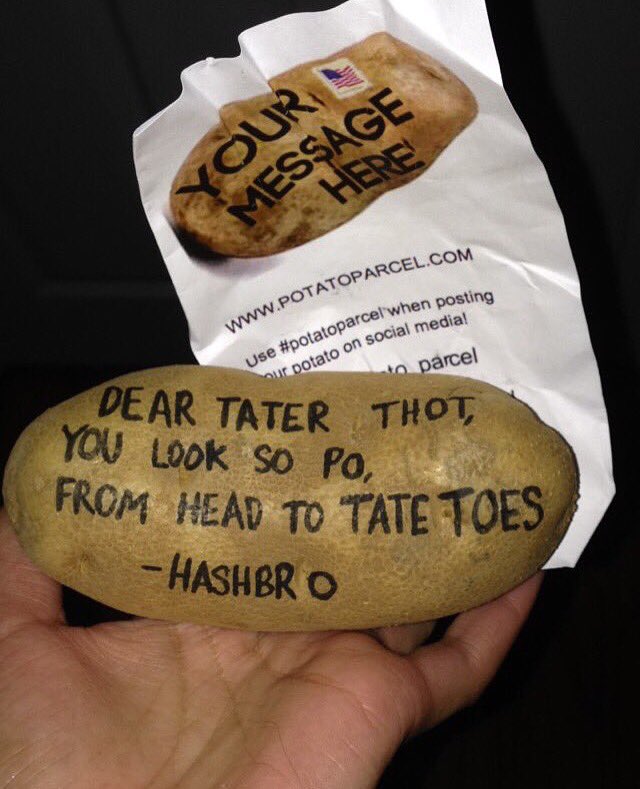 YOUR
MESSAGE
HERE
WWW.POTATOPARCEL.COM
Use #potatoparcel when posting
ur potato on social media!
to parcel
DEAR TATER THOT,
YOU LOOK SO PO,
FROM HEAD TO TATE TOES
-HASHBRO